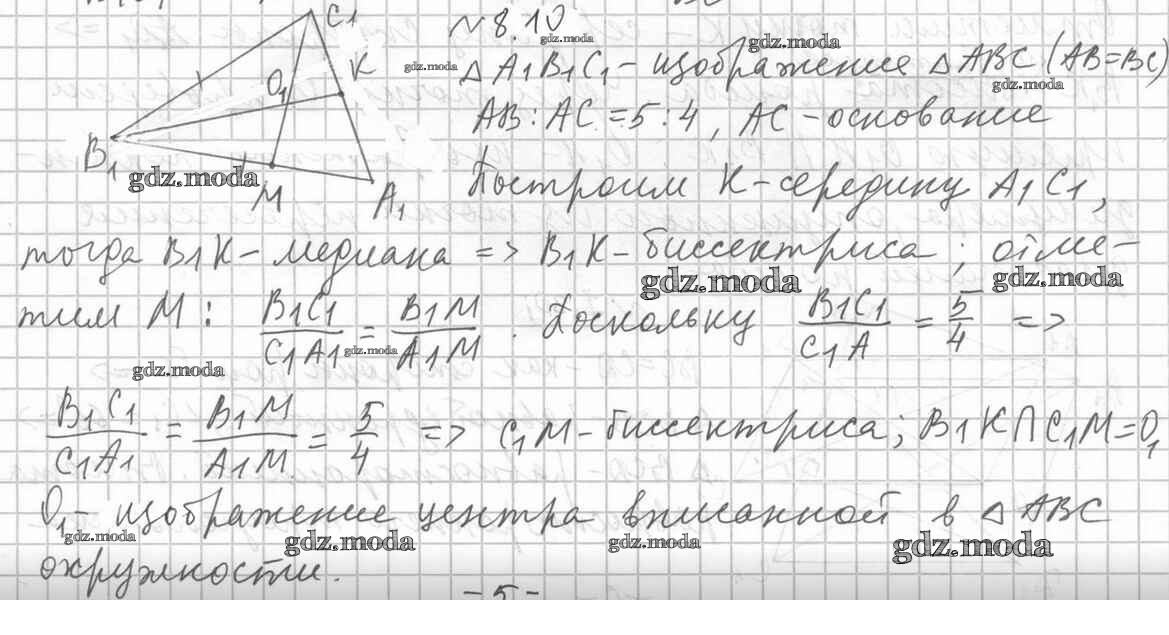 N 8.10
C1
O1
K
B1
M
A1
△ A1B1C1 – изображение △ ABC (AB=BC)
AB : AC = 5 : 4 , AC – основание
Построим K – середину A1C1 ,
тогда B1K – медиана => B1K – биссектриса ; отме-
тим M : B1C1/C1A1 = B1M/A1M . Поскольку B1C1/C1A = 5/4 =>
B1C1/C1A1 = B1M/A1M = 5/4 => C1M – биссектриса ; B1K ∩ C1M = O1
O1 – изображение центра вписанной в △ ABC
окружности.
– 5 –
gdz.moda
gdz.moda
gdz.moda
gdz.moda
gdz.moda
gdz.moda
gdz.moda
gdz.moda
gdz.moda
gdz.moda
gdz.moda
gdz.moda
gdz.moda